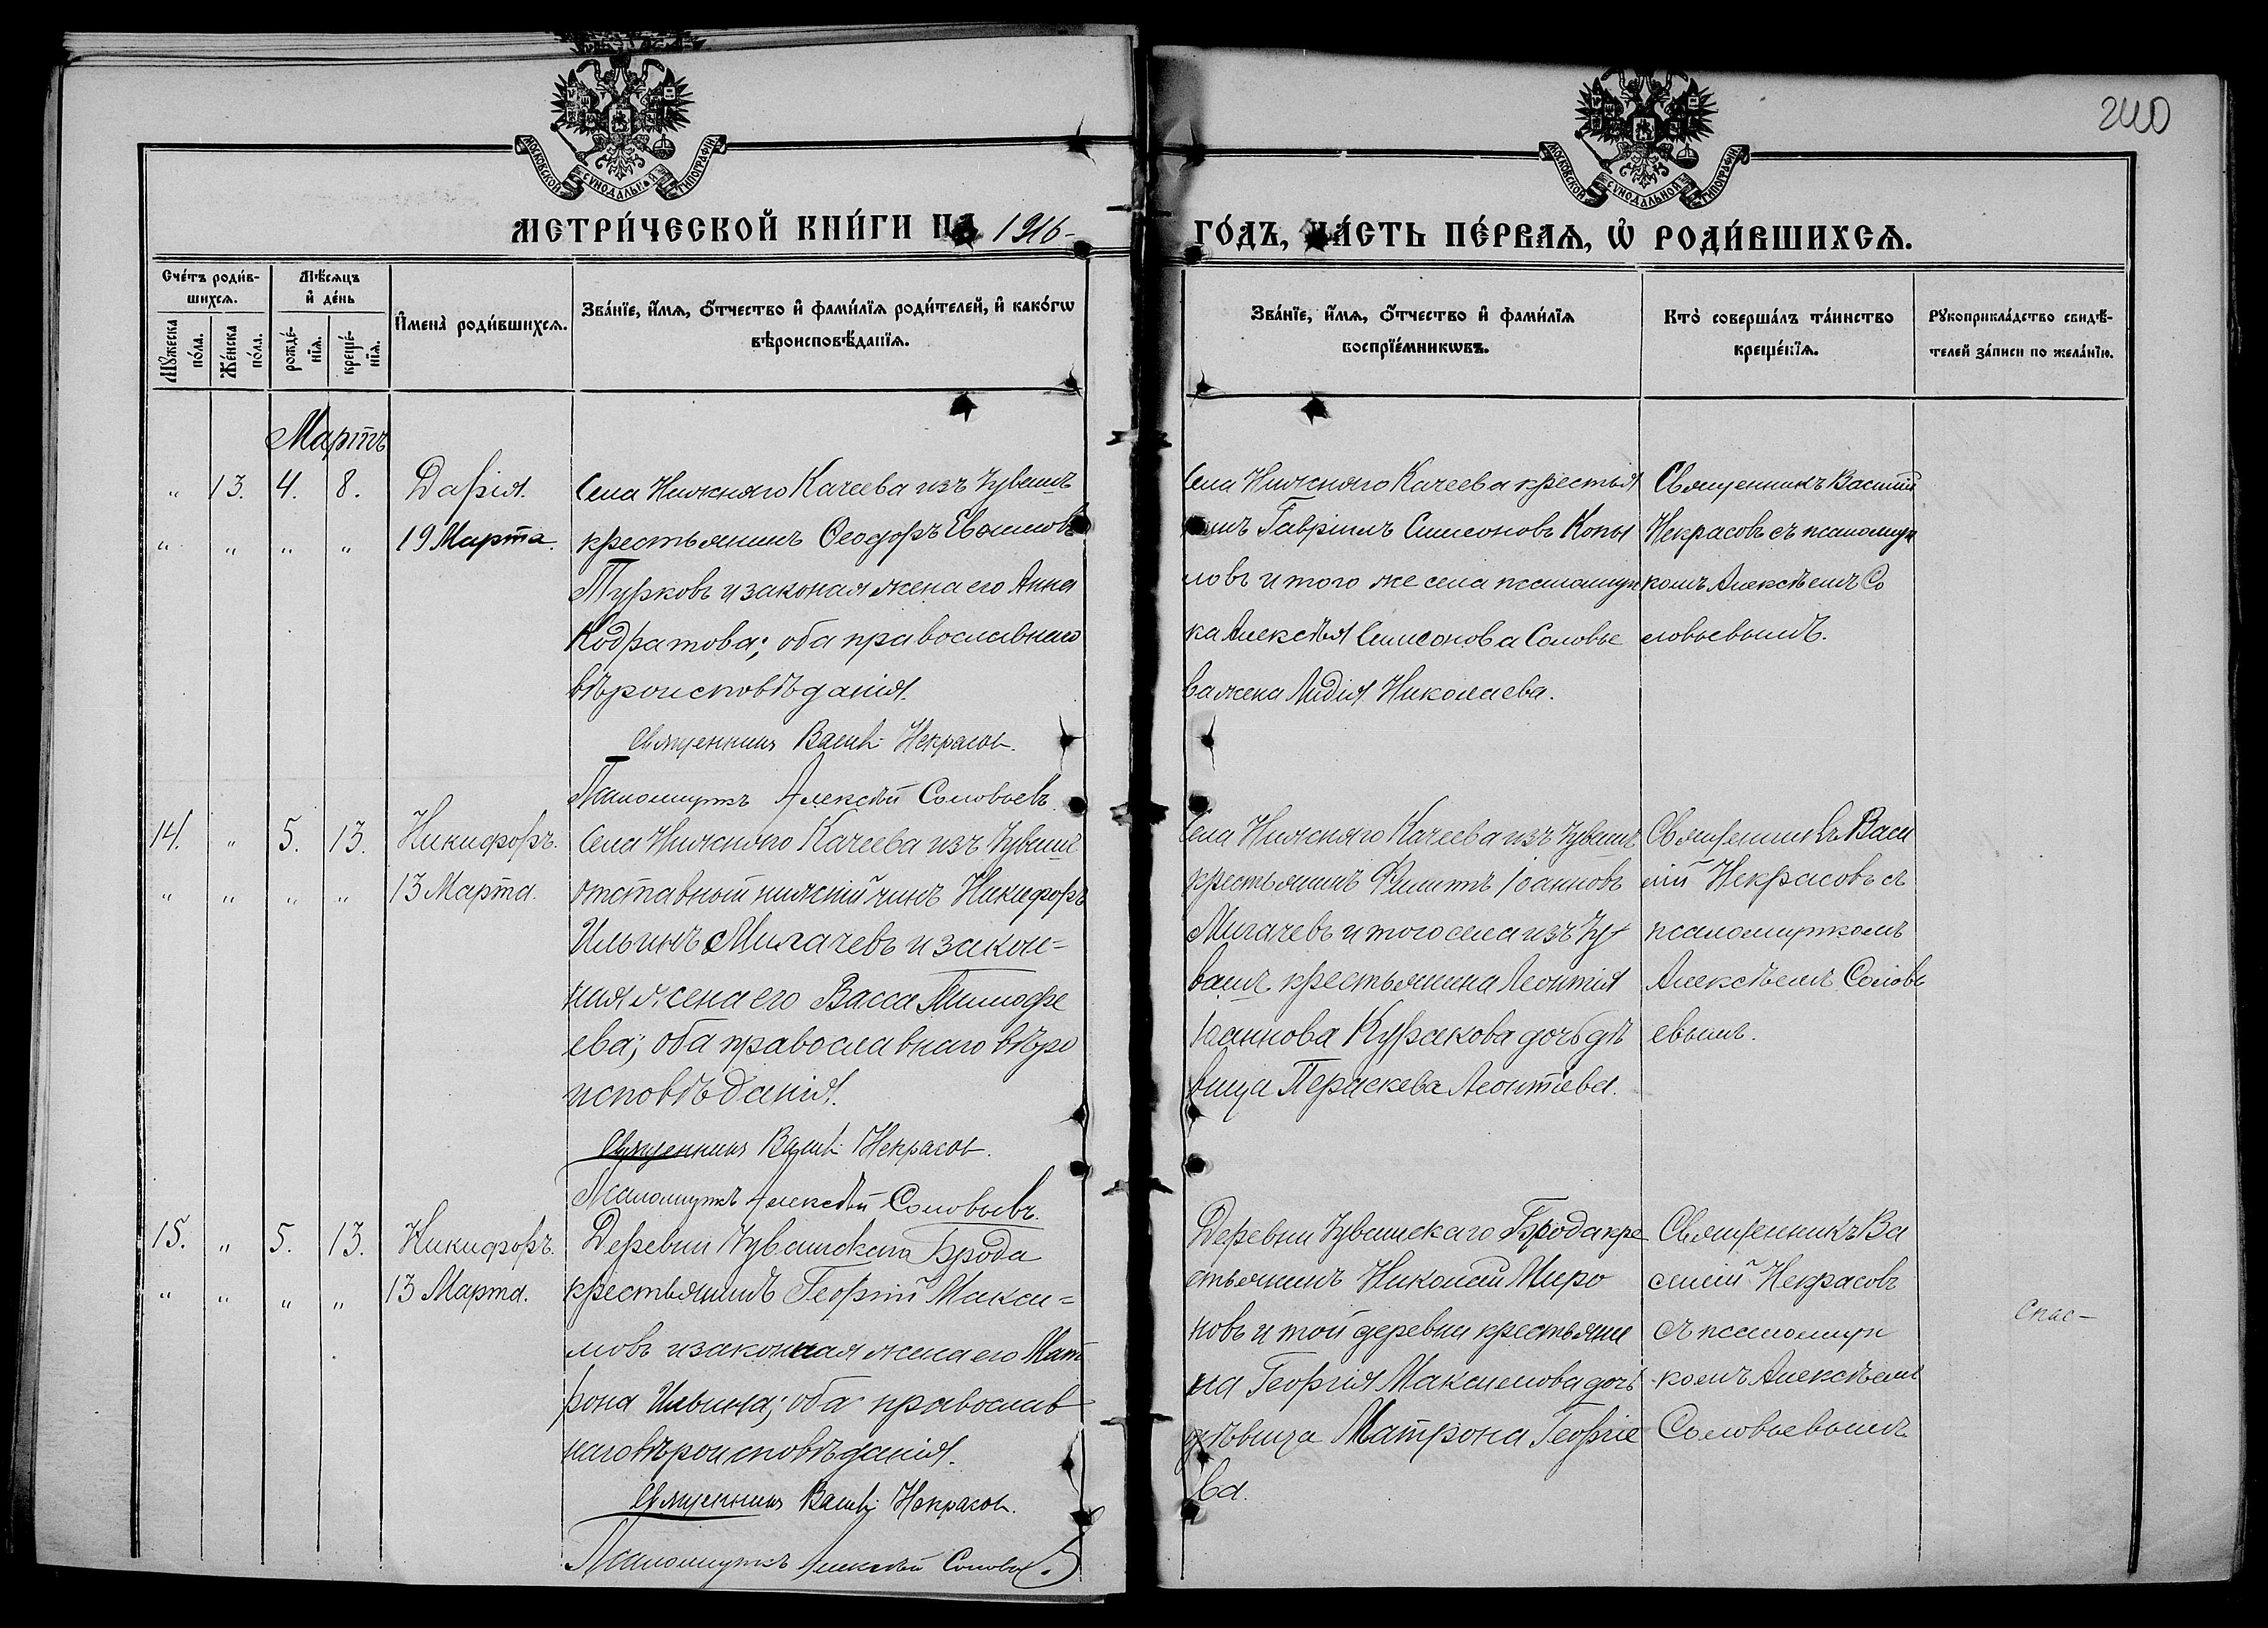 240
МОСКОВСКОЙ СУНОДАЛЬНОЙ ТИПОГРАФІИ
МОСКОВСКОЙ СУНОДАЛЬНОЙ ТИПОГРАФІИ
МЕТРИ́ЧЕСКОЙ КНИ́ГИ НА 1916-
ГО́ДЪ, ЧА́СТЬ ПЕ́РВАѦ, Ѡ҆ РОДИ́ВШИХСѦ.
Сче́тъ роди́в-
шихсѧ.
Мѣ́сѧцъ
и҆ де́нь
Мꙋ́жеска
по́ла.
Же́нска
по́ла.
рожде́-
нїѧ.
креще́-
нїѧ.
И҆мена̀ роди́вшихсѧ.
Зва́нїе, и҆́мѧ, ѻ҆́тчество и҆ фами́лїѧ роди́телей, и҆ како́гѡ
вѣроисповѣ́данїѧ.
Зва́нїе, и҆́мѧ, ѻ҆́тчество и҆ фами́лїѧ
воспрїе́мникѡвъ.
Кто̀ соверша́лъ та́инство
креще́нїѧ.
Рꙋкоприкла́дство свидѣ́-
телей за́писи по жела́нїю.
Мартъ
„ 13. 4. 8. Дарія.
„ „ „ „ 19 Марта.
Села Нижняго Качеева изъ Чувашъ
крестьянинъ Ѳеодоръ Евѳимовъ
Турковъ и законая жена его Анна
Кодратова; оба православнаго
вѣроисповѣданія.
Священникъ Васил Некрасов.
Псаломщикъ Алексѣй Соловьевъ
Села Нижняго Качеева крестья
нинъ Гавріилъ Симеоновъ Копы
ловъ и того же села псаломщи
ка Алексѣя Симеонова Соловье
ва жена Лидія Николаева.
Священникъ Василій
Некрасовъ съ псаломщи
комъ Алексѣемъ Со
ловьевымъ.
14. „ 5. 13. Никифоръ.
„ „ „ „ 13 Марта.
Села Нижняго Качеева изъ Чувашъ
отставный нижній чинъ Никифоръ
Ильинъ Мигачевъ и закон-
ная жена его Васса Тимофе
ева; оба православнаго вѣро
исповѣданія.
Священникъ Васил Некрасов.
Псаломщикъ Алексѣй Соловьевъ.
Села Нижняго Качеева изъ Чувашъ
крестьянинъ Филиппъ Іоанновъ
Мигачевъ и того села изъ Чу
вашъ крестьянина Леонтія
Іоаннова Куракова дочь дѣ
вица Параскева Леонтіева.
Священникъ Васи
лій Некрасовъ съ
псаломщикомъ
Алексѣемъ Соловь
евымъ.
15. „ 5. 13. Никифоръ.
„ „ „ „ 13 Марта.
Деревни Чувашскаго Брода
крестьянинъ Георгій Макси-
мовъ и законная жена его Мат
рона Ильина; оба православ
наго вѣроисповѣданія.
Священникъ Васил Некрасов.
Псаломщикъ Алексѣй Соловьев.
Деревни Чувашскаго Брода кре
стьянинъ Николай Миро
новъ и той деревни крестьяни
на Георгія Максимова дочь
дѣвица Матрона Георгіе
ва.
Священникъ Ва
силій Некрасовъ
съ псаломщи
комъ Алексѣемъ
Соловьевымъ
Спас-